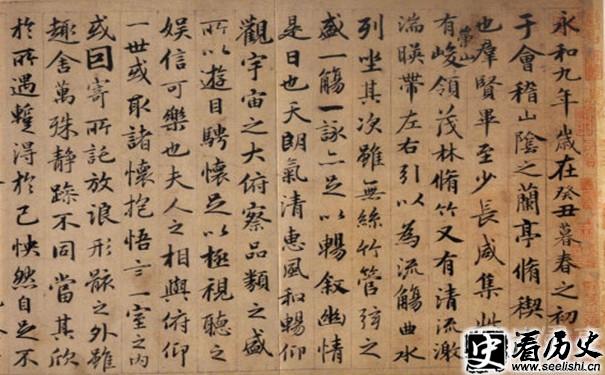 永和九年歲在癸丑暮春之初
于會稽山陰之蘭亭脩稧
也群賢畢至少長咸集此
有崇山峻領茂林脩竹又有清流激
湍暎帶左右引以為流觴曲水
列坐其次雖無絲竹管弦之
盛一觴一詠亦足以暢敘幽情
是日也天朗氣清惠風和暢仰
觀宇宙之大俯察品類之盛
所以遊目騁懷足以極視聽之
娛信可樂也夫人之相與俯仰
一世或取諸懷抱悟言一室之內
或因寄所託放浪形骸之外雖
趣舍萬殊靜躁不同當其欣
於所遇蹔得於己怏然自足不
史看历史
www.seelishi.cn